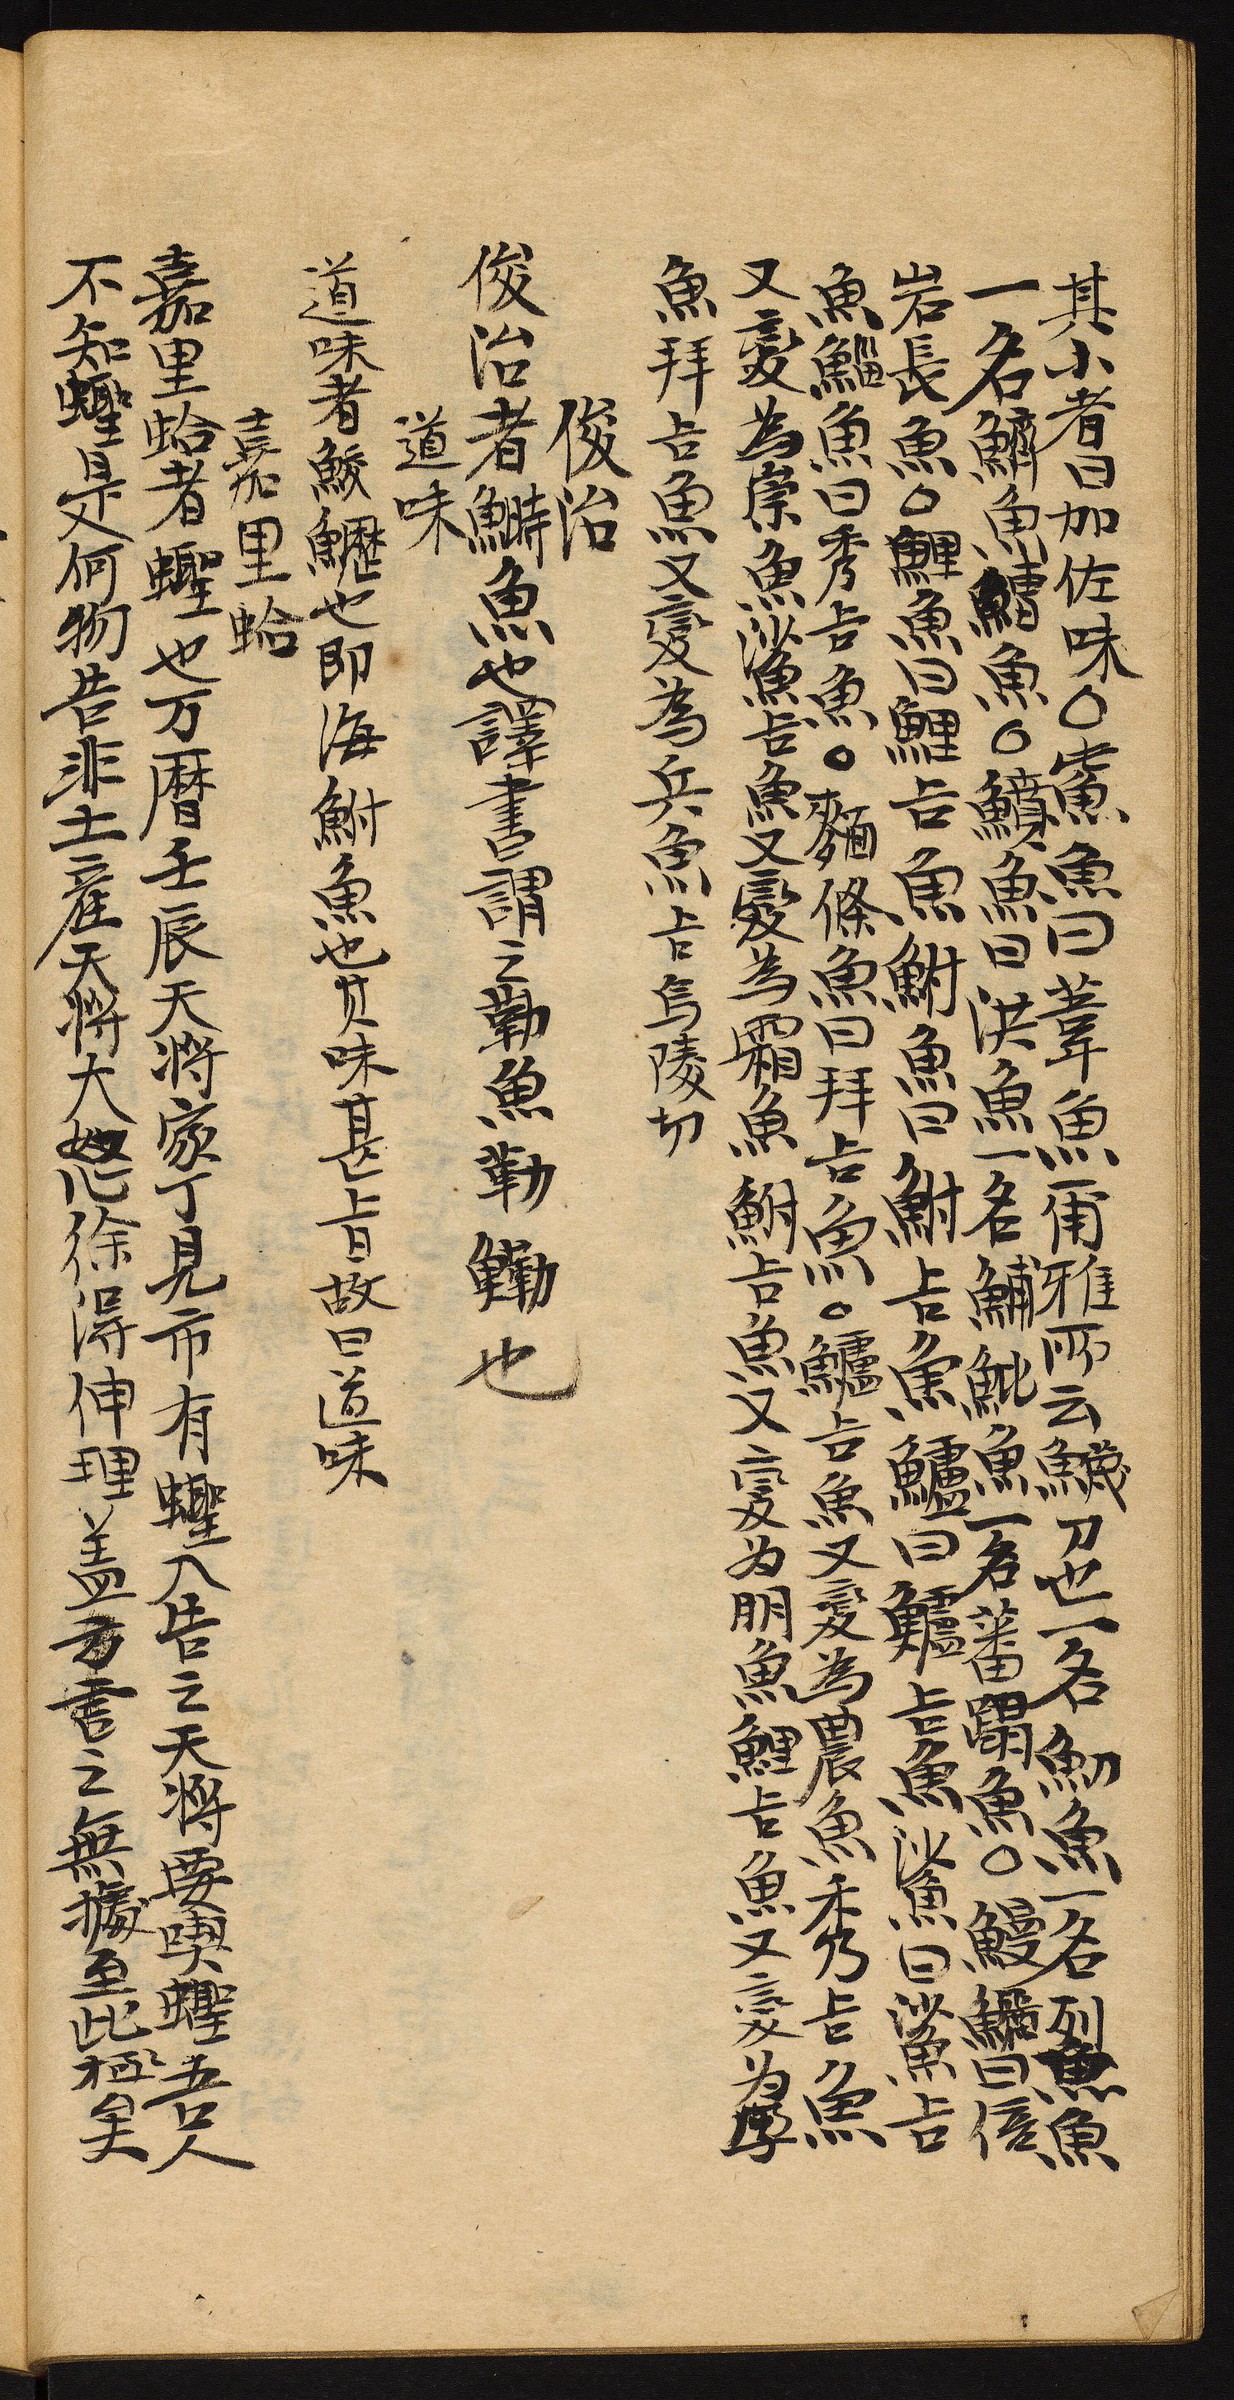 其小者曰加佐味○鮆魚曰葦魚甭雅所云鱴刀也一名魛魚一名鮤魚
一名鱭魚鰽魚○鱝魚曰洪魚一名鯆魮魚一名蕃蹋魚○鰻鱺曰倍
岩長魚○鯉魚曰鯉占魚鮒魚曰鮒占魚鱸曰鱸占魚沙魚曰鯊占
魚鯔魚曰秀占魚○麵條魚曰拜占魚○鱸占魚又變為農魚秀占魚
又變為崇魚鯊占魚又變為霜魚鮒占魚又變为朋魚鯉占魚又變为厚
魚拜占魚又變為兵魚占烏陵切
俊治
俊治者鰣魚也譯書謂之勒魚勒鰳也
道味
道味者鮻鱺也即海鮒魚也其味甚旨故曰道味
嘉里蛤
嘉里蛤者蟶也万曆壬辰天將家丁見市有蟶入告之天將要喫蟶吾人
不知蟶是又何物告非土產天將大怒徐得伸理盖方言之無據至此極矣